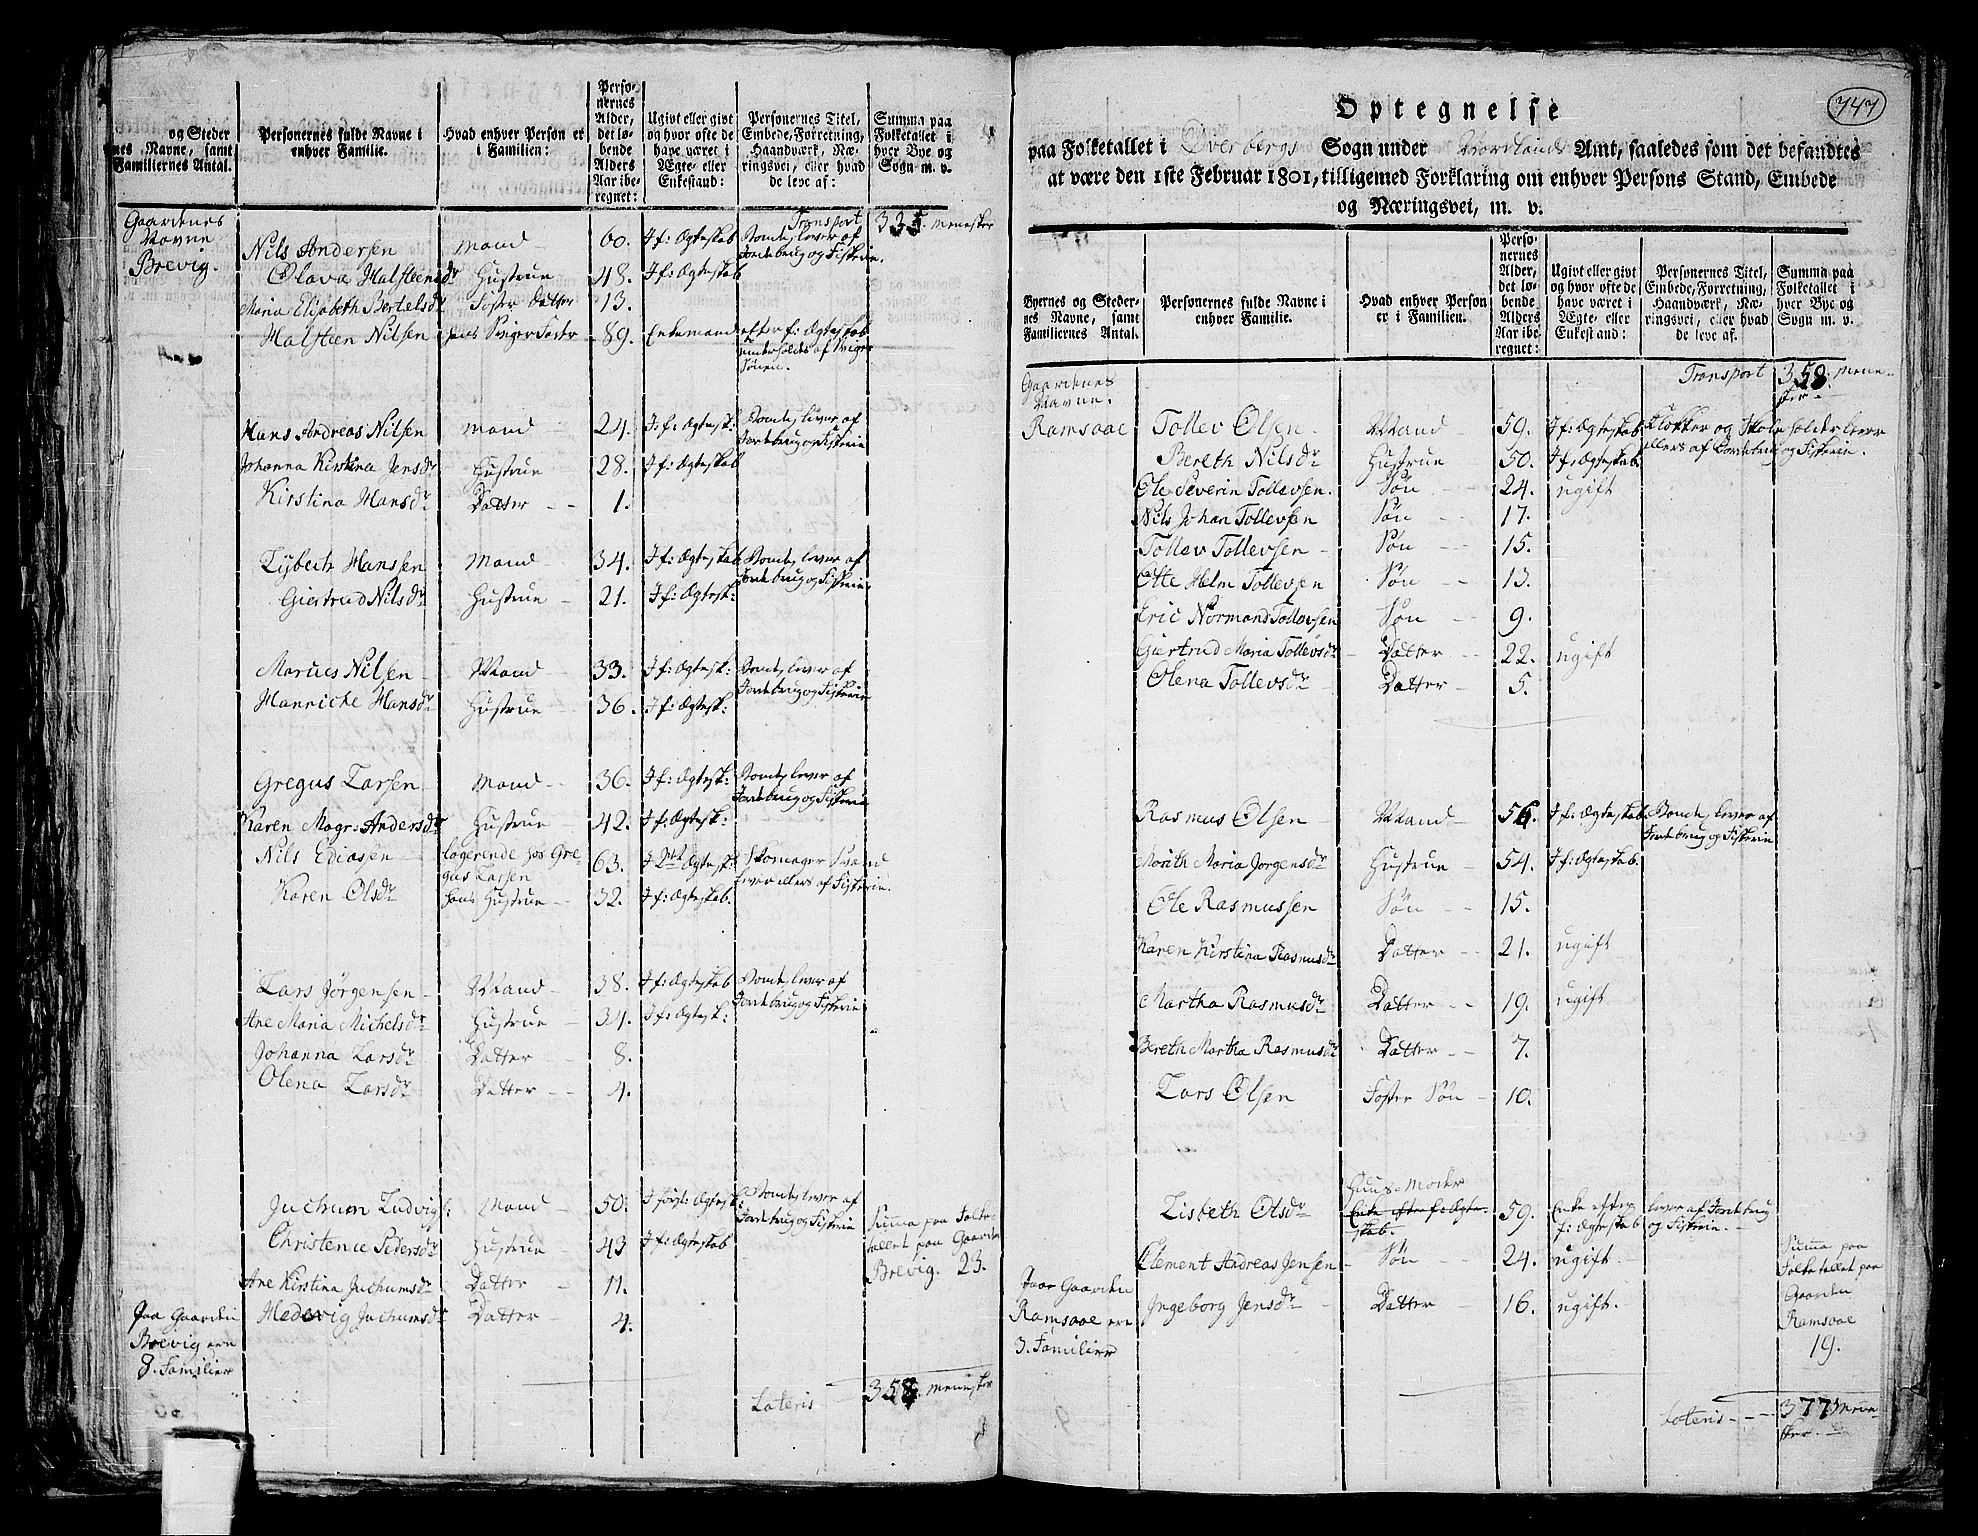 og Steder
nes Navne, samt
Familiernes Antal.
Personernes fulde Navne i
enhver Familie.
Hvad enhver Person er
i Familien:
Perso-
nernes
Alder,
det lø-
bende
Alders
Aar ibe-
regnet:
Ugivt eller givt
og hvor ofte de
have været i
Ægte- eller
Enkestand:
Personernes Titel,
Embede, Forretning,
Haandværk, Næ-
ringsvei, eller hvad
de leve af:
Summa paa
Folketallet i
hver Bye og
Sogn m. v.
Gaardenes
Navne
Brevig.
Transport 335. Mennesker
Nils Andersen Mand 60. I f: Ægteskab Bonde, lever af
Jordebrug og Fiskerie.
Olava Halsteensdr Hustrue 48. I f: Ægteskab
Maria Elisabeth Bertelsdr Foster Datter 13.
Halsteen Nilsen hans Svigerfader 89. Enkemand efter f: Ægteskab
underholdes af Sviger
Sønen.
Hans Andreas Nilsen Mand 24. I f: Ægtesk: Bonde, lever af
Jordebrug og Fiskerie
Johanna Kirstina Jensdr Hustrue 28. I f: Ægteskab
Kirstina Hansdr Datter 1.
Lybertz Hanssen Mand 34. I f: Ægteskab Bonde, lever af
Jordebrug og Fiskerie
Giertrud Nilsdr Hustrue 21. I f: Ægtesk:
Marues Nilsen Mand 33. I f: Ægtesk: Bonde, lever af
Jordebrug og Fiskerie
Hanricke Hansdr Hustrue 36. I f: Ægtesk:
Gregus Larsen Mand 36. I f: Ægtesk: Bonde, lever af
Jordebrug og Fiskerie
Karen Magr: Andersdr Hustrue 42. I f: Ægtesk:
Nils Ediassen logerende hos Gre-
gus Larsen 63. I 2det Ægtesk: Skomager Svend
lever ellers af Fiskerie.
Karen Olsdr hans Hustrue 32. I f: Ægteskab.
Lars Jørgensen Mand 38. I f: Ægteskab Bonde, lever af
Jordebrug og Fiskerie
Ane Maria Michelsdr Hustrue 34. I f: Ægtesk:
Johanna Larsdr Datter 8.
Olena Larsdr Datter 4.
Juchum Ludvigs: Mand 50. I først: Ægtesk: Bonde, lever af
Jordebrug og Fiskerie
Christence Pedersdr Hustrue 43 I f: Ægteskab
Ane Kirstina Juchumsdr Datter 11.
Hedevig Juchumsdr Datter 4.
Summa paa Folke-
tallet paa Gaarden
Brevig. 23.
Paa Gaarden
Brevig ere
8. Familier
Lateris 358. Mennesker
747
Optegnelse
paa Folketallet i Øverbergs Sogn under Nordlands Amt, saaledes som det befandtes
at være den 1ste Februar 1801, tilligemed Forklaring om enhver Persons Stand, Embede
og Næringsvei, m. v.
Byernes og Steder-
nes Navne, samt
Familiernes Antal.
Personernes fulde Navne i
enhver Familie.
Hvad enhver Person
er i Familien.
Perso-
nernes
Alder,
det lø-
bende
Alders
Aar ibe-
regnet:
Ugivt eller givt
og hvor ofte de
have været i
Ægte- eller
Enkestand:
Personernes Titel,
Embede, Forretning,
Haandværk, Næ-
ringsvei, eller hvad
de leve af.
Summa paa
Folketallet i
hver Bye og
Sogn m. v.
Gaardenes
Navne.
Ramsaae
Transport 358. Menne-
sker.
Tollev Olsen Mand 59. I f: Ægteskab Klokker og Skoleholder lever
ellers af Jordebrug og Fiskerie.
Bereth Nilsdr Hustrue 50. I f: Ægteskab.
Ole Severin Tollevsen. Søn 24. ugift
Nils Johan Tollevsen Søn 17.
Tollev Tollevsen Søn 15.
Otte Helm Tollevsen Søn 13.
Eric Normand Tollevsen Søn 9.
Giertrud Maria Tollevsdr Datter 22. ugift
Olena Tollevsdr Datter 5.
Rasmus Olsen Mand 56. I f: Ægteskab. Bonde, lever af
Jordebrug og Fiskerie
Marith Maria Jørgensdr Hustrue 54. I f: Ægteskab.
Ole Rasmussen Søn 15.
Karen Kirstina Rasmusdr Datter 21. ugift
Martha Rasmusdr Datter 19. ugift
Bereth Martha Rasmusdr Datter 7.
Lars Olsen Foster Søn 10.
Lisbeth Olsdr Huus-Moder
Enke efter f: Ægte-
skab. 59. Enke efter
f: Ægteskab lever af Jordebrug
og Fiskerie.
Clement Andreas Jensen Søn 24. ugift.
Ingeborg Jensdr Datter 16. ugift.
Paa Gaarden
Ramsaae ere
3. Familier
Summa paa
Folketallet paa
Gaarden
Ramsaae
19.
Lateris 377 Menne-
sker.